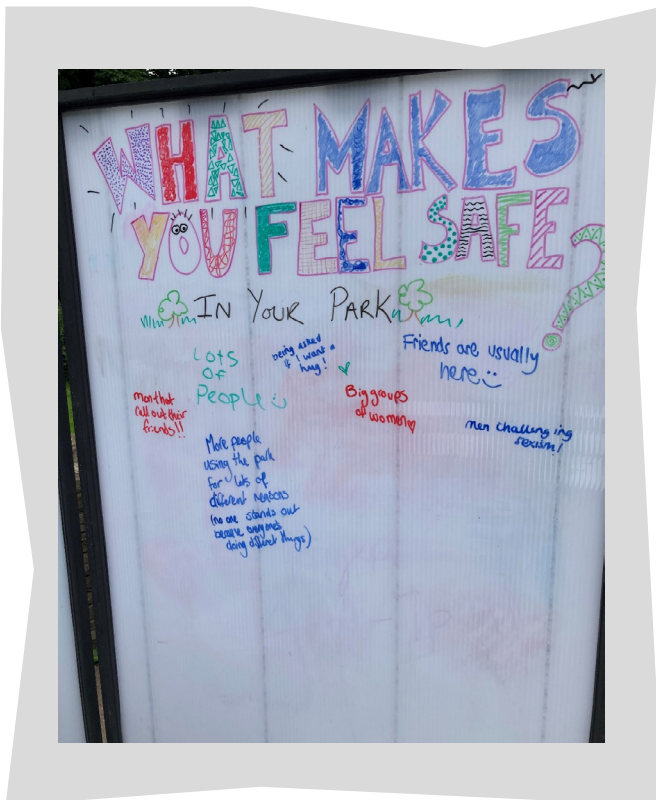 WHAT MAKES
YOU FEEL SAFE?
IN YOUR PARK
Lots
of
People
being asked
if I want a
hug!
Friends are usually
here
men that
call out their
friends!!
Big groups
of women
men challenging
sexism!
More people
using the park
for lots of
different reasons
(no one stands out
because everyones
doing different things)